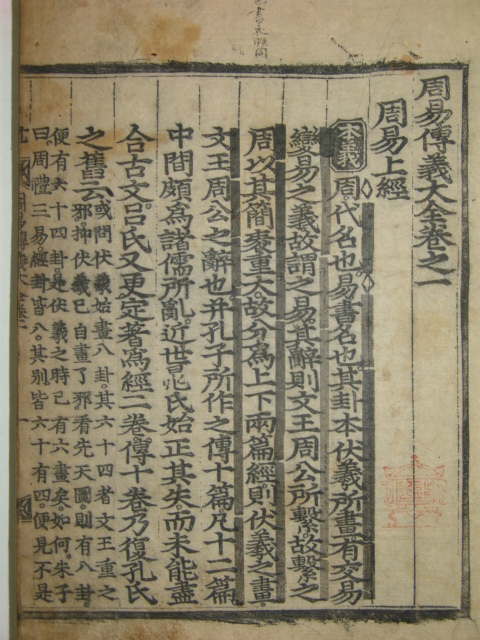 周易傳義大全卷之一
周易上經
本義 周代名也易書名也其卦本伏羲所畫有交易
變易之義故謂之易其辭則文王周公所繫故繫之
周以其簡袠重大故分爲上下兩篇經則伏羲之畫
文王周公之辭也并孔子所作之傳十篇凡十二篇
中間頗爲諸儒所亂近世晁氏始正其失而未能盡
合古文呂氏又更定著爲經二卷傳十卷乃復孔氏
之舊云
或問伏羲始畫八卦其六十四者文王重之
邪抑伏羲已自畫了邪看先天圖則有八卦
便有六十四卦是伏羲之時已有六畫矣如何朱子
曰周禮三易經卦皆八其別皆六十有四便見不是